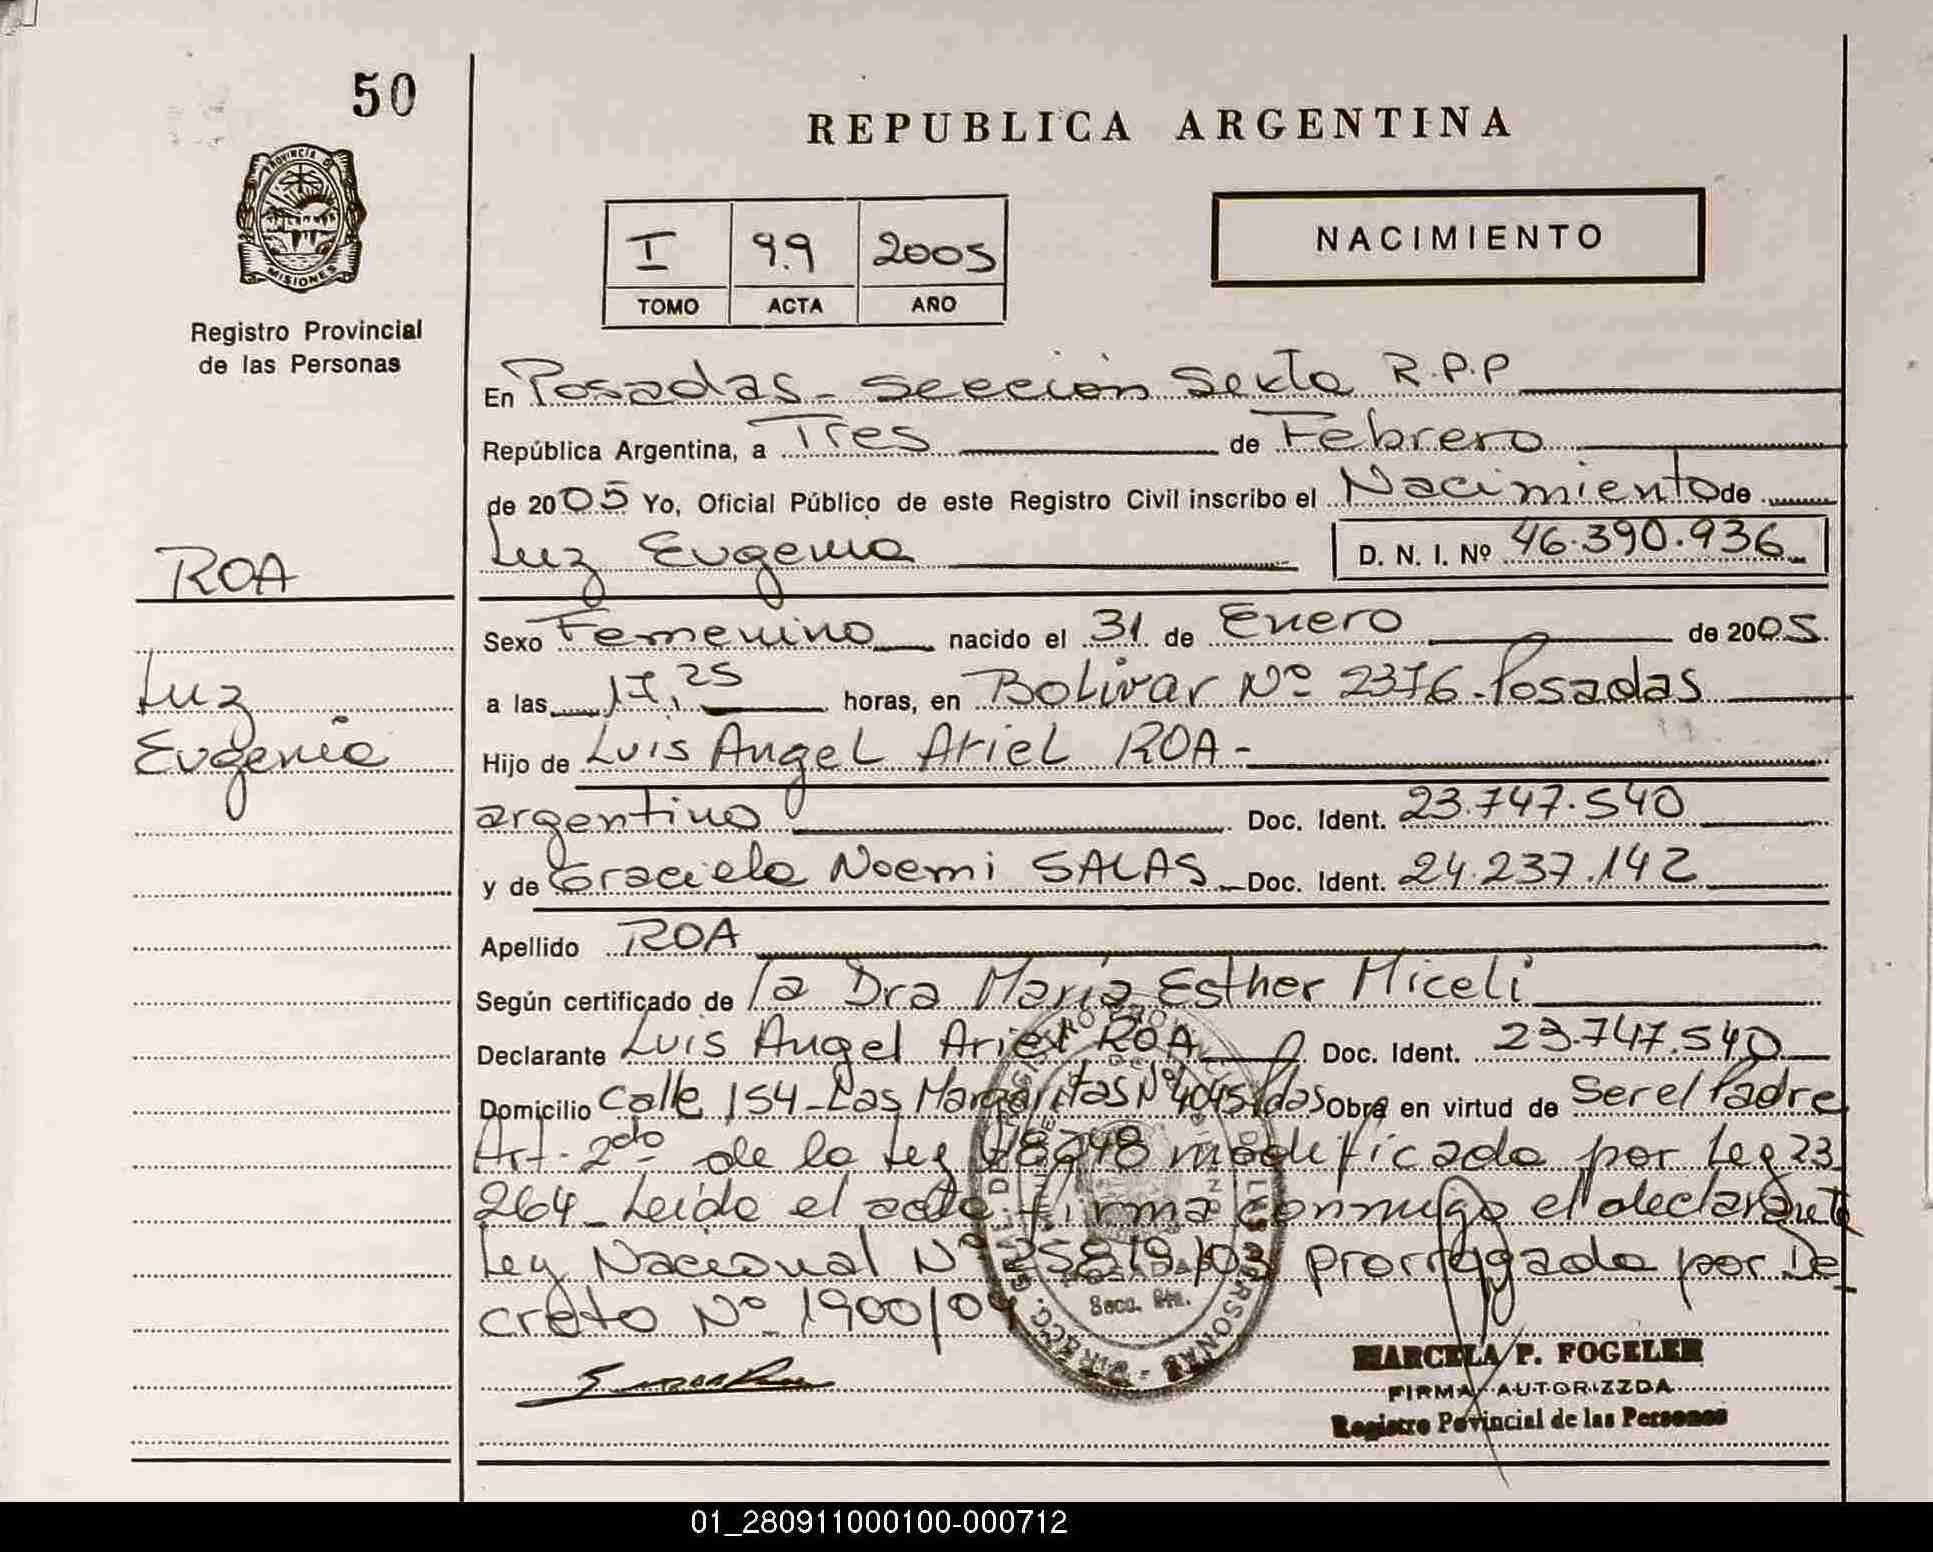 50
REPUBLICA ARGENTINA
PROVINCIA DE
MISIONES
Registro Provincial
de las Personas
I 99 2005
TOMO ACTA AÑO
NACIMIENTO
En Posadas - Sección Sexta R.P.P
República Argentina, a Tres de Febrero
de 2005 Yo, Oficial Público de este Registro Civil inscribo el Nacimiento de
Luz Eugenia D. N. I. Nº 46.390.936
ROA
Luz
Eugenia
Sexo Femenino nacido el 31 de Enero de 2005.
a las 17,25 horas, en Bolivar Nº 2376 - Posadas
Hijo de Luis Angel Ariel ROA -
argentino Doc. Ident. 23.747.540
y de Graciela Noemi SALAS Doc. Ident. 24.237.142
Apellido ROA
Según certificado de la Dra Maria Esther Miceli
Declarante Luis Angel Ariel ROA Doc. Ident. 23.747.540
Domicilio Calle 154 - Las Margaritas Nº 4045 Pdas Obra en virtud de Ser el Padre
Art. 2do de la Ley 18248 modificada por Ley 23
264 - Leida el acta firma conmigo el declarante
Ley Nacional Nº 25819/03 prorrogada por De
creto Nº 1900/04
MARCELA P. FOGELER
FIRMA AUTORIZZDA
Registro Povincial de las Personas
01_280911000100-000712